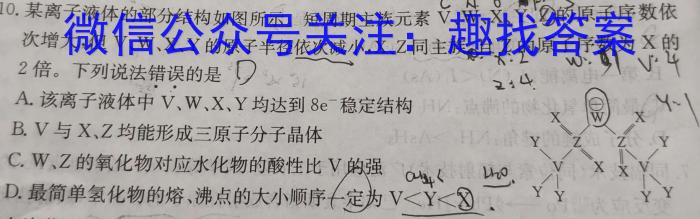 10.某离子液体的部分结构如图所示，短周期主族元素V、W、X、Y、Z的原子序数依
次增大，V、W、Y的原子半径依次减小，X、Z同主族且Z的原子序数为X的
微信公众号关注：趣找答案
2倍。下列说法错误的是 D
A.该离子液体中V、W、X、Y均达到8e⁻稳定结构
B.V与X、Z均能形成三原子分子晶体
C.W、Z的氧化物对应水化物的酸性比V的强
D.最简单氢化物的熔、沸点的大小顺序一定为V<Y<X
X ⊖ W X
Y Z Z Y
V X X V
Y Y Y Y
X:2
Z:4
V:4
Y-1
CH₄
H₂O